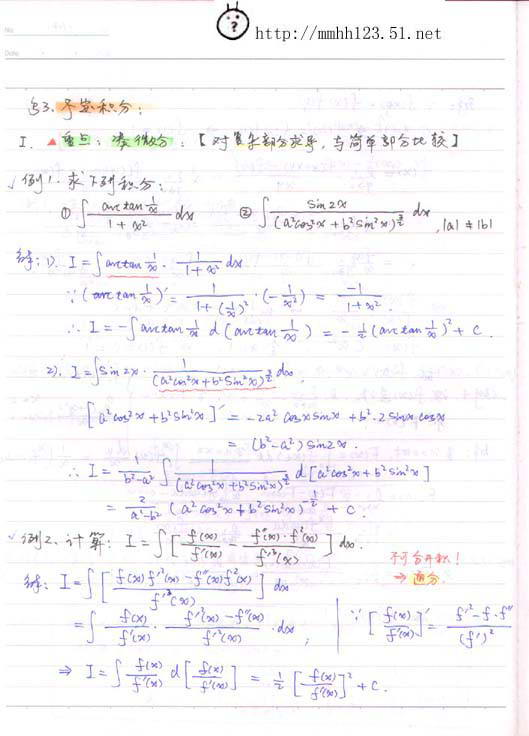 No.
Date
http://mmhh123.51.net
§3. 不定积分:
I. ▲重点: 凑微分: 【对复杂部分求导, 与简单部分比较】
√例1. 求下列积分:
① ∫ (arctan 1/x)/(1+x²) dx ② ∫ sin2x/(a²cos²x + b²sin²x)^(3/2) dx, |a| ≠ |b|
解: 1). I = ∫ arctan 1/x · 1/(1+x²) dx
∵ (arctan 1/x)' = 1/(1+(1/x)²) · (-1/x²) = -1/(1+x²).
∴ I = -∫ arctan 1/x d(arctan 1/x) = -1/2 (arctan 1/x)² + C.
2). I = ∫ sin2x · 1/(a²cos²x + b²sin²x)^(3/2) dx.
[a²cos²x + b²sin²x]' = -2a²cosxsinx + b²·2sinxcosx
= (b²-a²)sin2x.
∴ I = 1/(b²-a²) ∫ 1/(a²cos²x + b²sin²x)^(3/2) d[a²cos²x + b²sin²x]
= 2/(a²-b²) (a²cos²x + b²sin²x)^(-1/2) + C.
√例2. 计算: I = ∫ [f(x)/f'(x) - f''(x)·f²(x)/f'³(x)] dx.
不可分开积!
⇒ 通分.
解: I = ∫ [(f(x)f'²(x) - f''(x)f²(x))/f'³(x)] dx
= ∫ f(x)/f'(x) · (f'²(x) - f''(x))/f'²(x) · dx, ∵ [f(x)/f'(x)]' = (f'² - f·f'')/(f')²
⇒ I = ∫ f(x)/f'(x) d[f(x)/f'(x)] = 1/2 [f(x)/f'(x)]² + C.